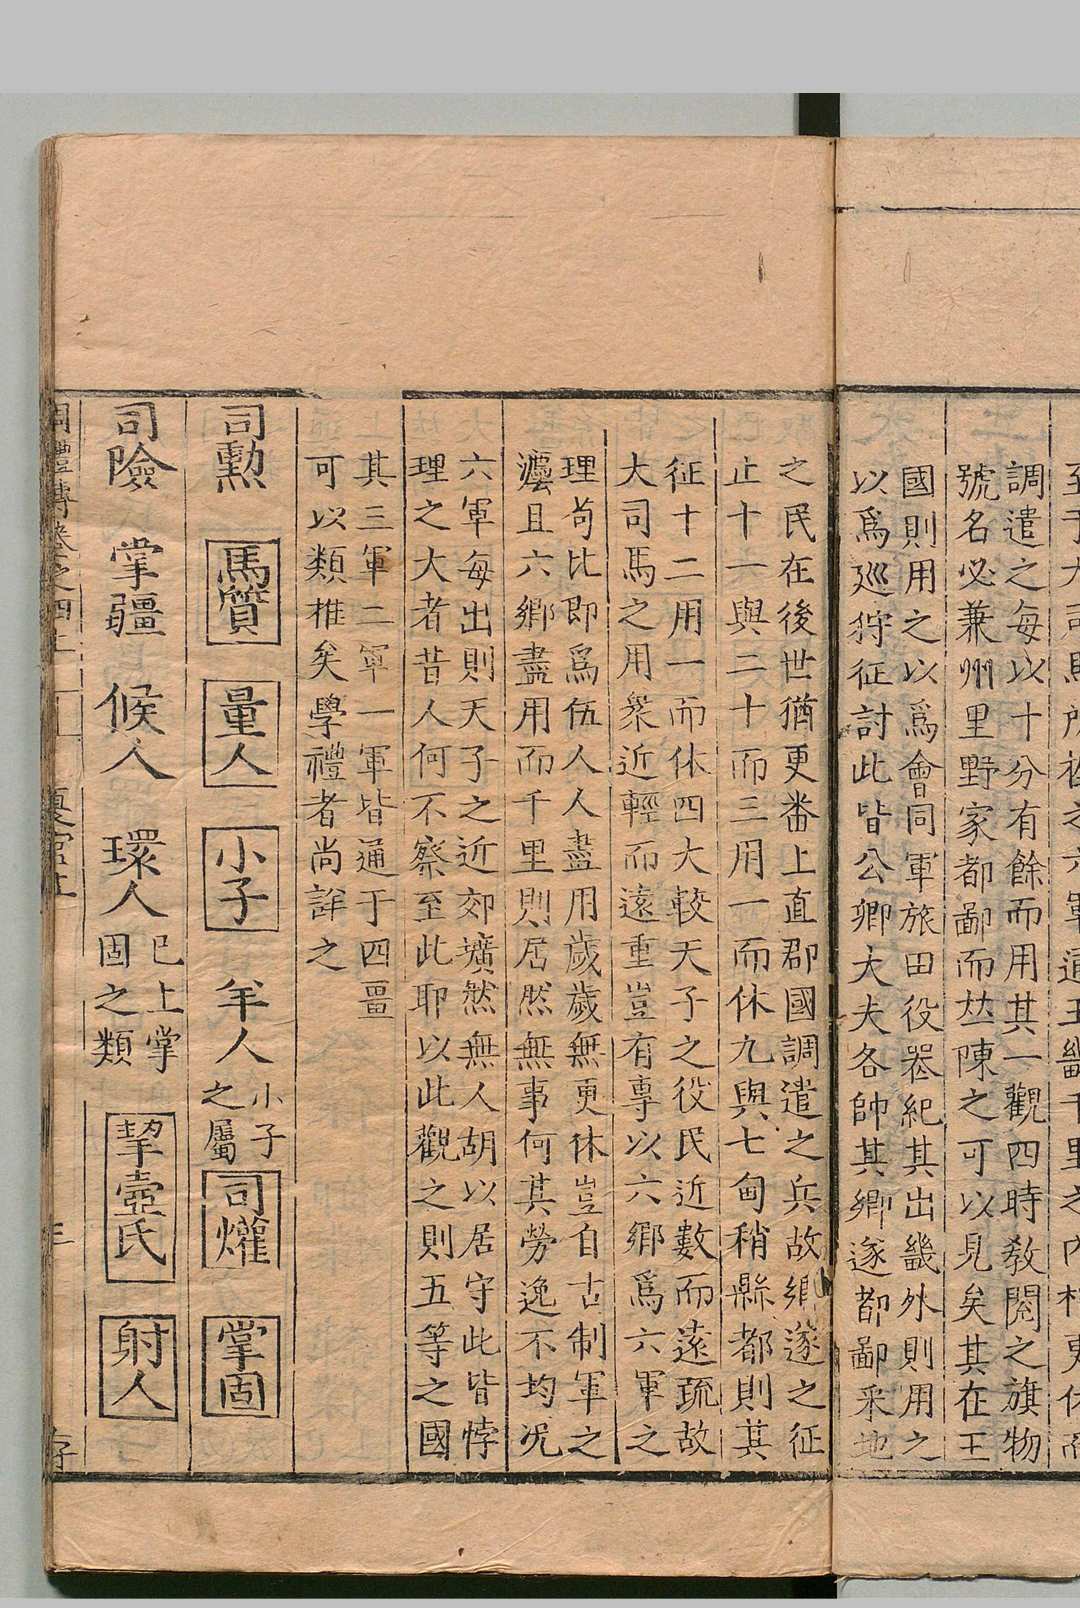 至于大司馬所
之六軍通王畿千里之內
更休而
調遣之每以十分有餘而用其一觀四時教閱之旗物
號名必兼州里野家都鄙而並陳之可以見矣其在王
國則用之以爲會同軍旅田役器紀其出畿外則用之
以爲巡狩征討此皆公卿大夫各帥其鄉遂都鄙采地
之民在後世猶更番上直郡國調遣之兵故鄉遂之征
止十一與二十而三用一而休九與七甸稍縣都則其
征十二用一而休四大較天子之役民近數而遠疏故
大司馬之用衆近輕而遠重豈有專以六鄉爲六軍之
理苟比即爲伍人人盡用歲歲無更休豈自古制軍之
灋且六鄉盡用而千里則居然無事何其勞逸不均況
六軍每出則天子之近郊壙然無人胡以居守此皆悖
理之大者昔人何不察至此耶以此觀之則五等之國
其三軍二軍一軍皆通于四畺
可以類推矣學禮者尚詳之
司勳 馬質 量人 小子 羊人 小子之屬 司爟 掌固
司險 掌疆 候人 環人 已上掌固之類 挈壺氏 射人
周禮傳卷之四上 夏官上